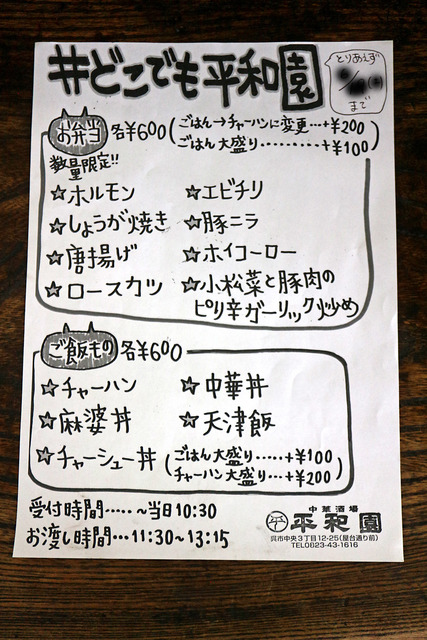 #どこでも平和園
とりあえず
まで
お弁当 各¥600 (ごはん→チャーハンに変更…+¥200)
(ごはん大盛り………+¥100)
数量限定!!
☆ホルモン ☆エビチリ
☆しょうが焼き ☆豚ニラ
☆唐揚げ ☆ホイコーロー
☆ロースカツ ☆小松菜と豚肉の
ピリ辛ガーリック炒め
ご飯もの 各¥600
☆チャーハン ☆中華丼
☆麻婆丼 ☆天津飯
☆チャーシュー丼 (ごはん大盛り……+¥100)
(チャーハン大盛り…+¥200)
受付時間……~当日10:30
お渡し時間…11:30~13:15
中華酒場
平和園
呉市中央3丁目12-25(屋台通り前)
TEL0823-43-1616